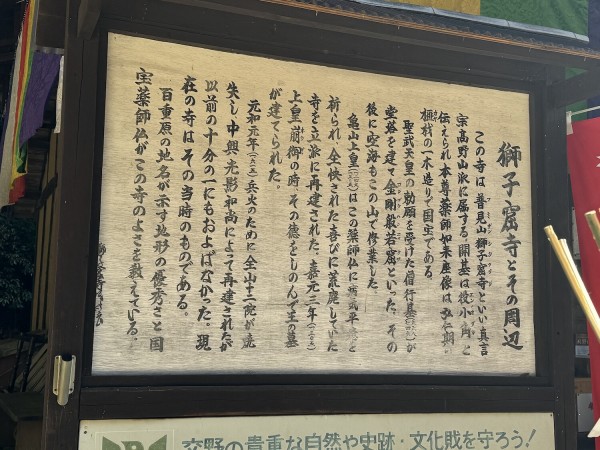 獅子窟寺とその周辺
この寺は普見山獅子窟寺といい真言
宗高野山派に属する。開基は役小角と
伝えられ本尊薬師如来座像は弘仁期の
一木造りで国宝である。
聖武天皇の勅願を受けた僧行基が
堂塔を建て金剛般若窟といった。その
後に空海もこの山で修業した。
亀山上皇はこの薬師仏に病気平と
祈られ全快された喜びに荒廃していた
寺を立派に再建された。嘉元三年(一三〇五)
上皇崩御の時その徳をしのんで王の墓
が建てられた。
元和元年(一六一五)兵火のために全山十二院が焼
失し中興光影和尚によって再建されたが
以前の十分の一にもおよばなかった。現
在の寺はその当時のものである。
百重原の地名が示す地形の優秀さと国
宝薬師仏がこの寺のよさを教えている。
交野の貴重な自然や史跡・文化財を守ろう!